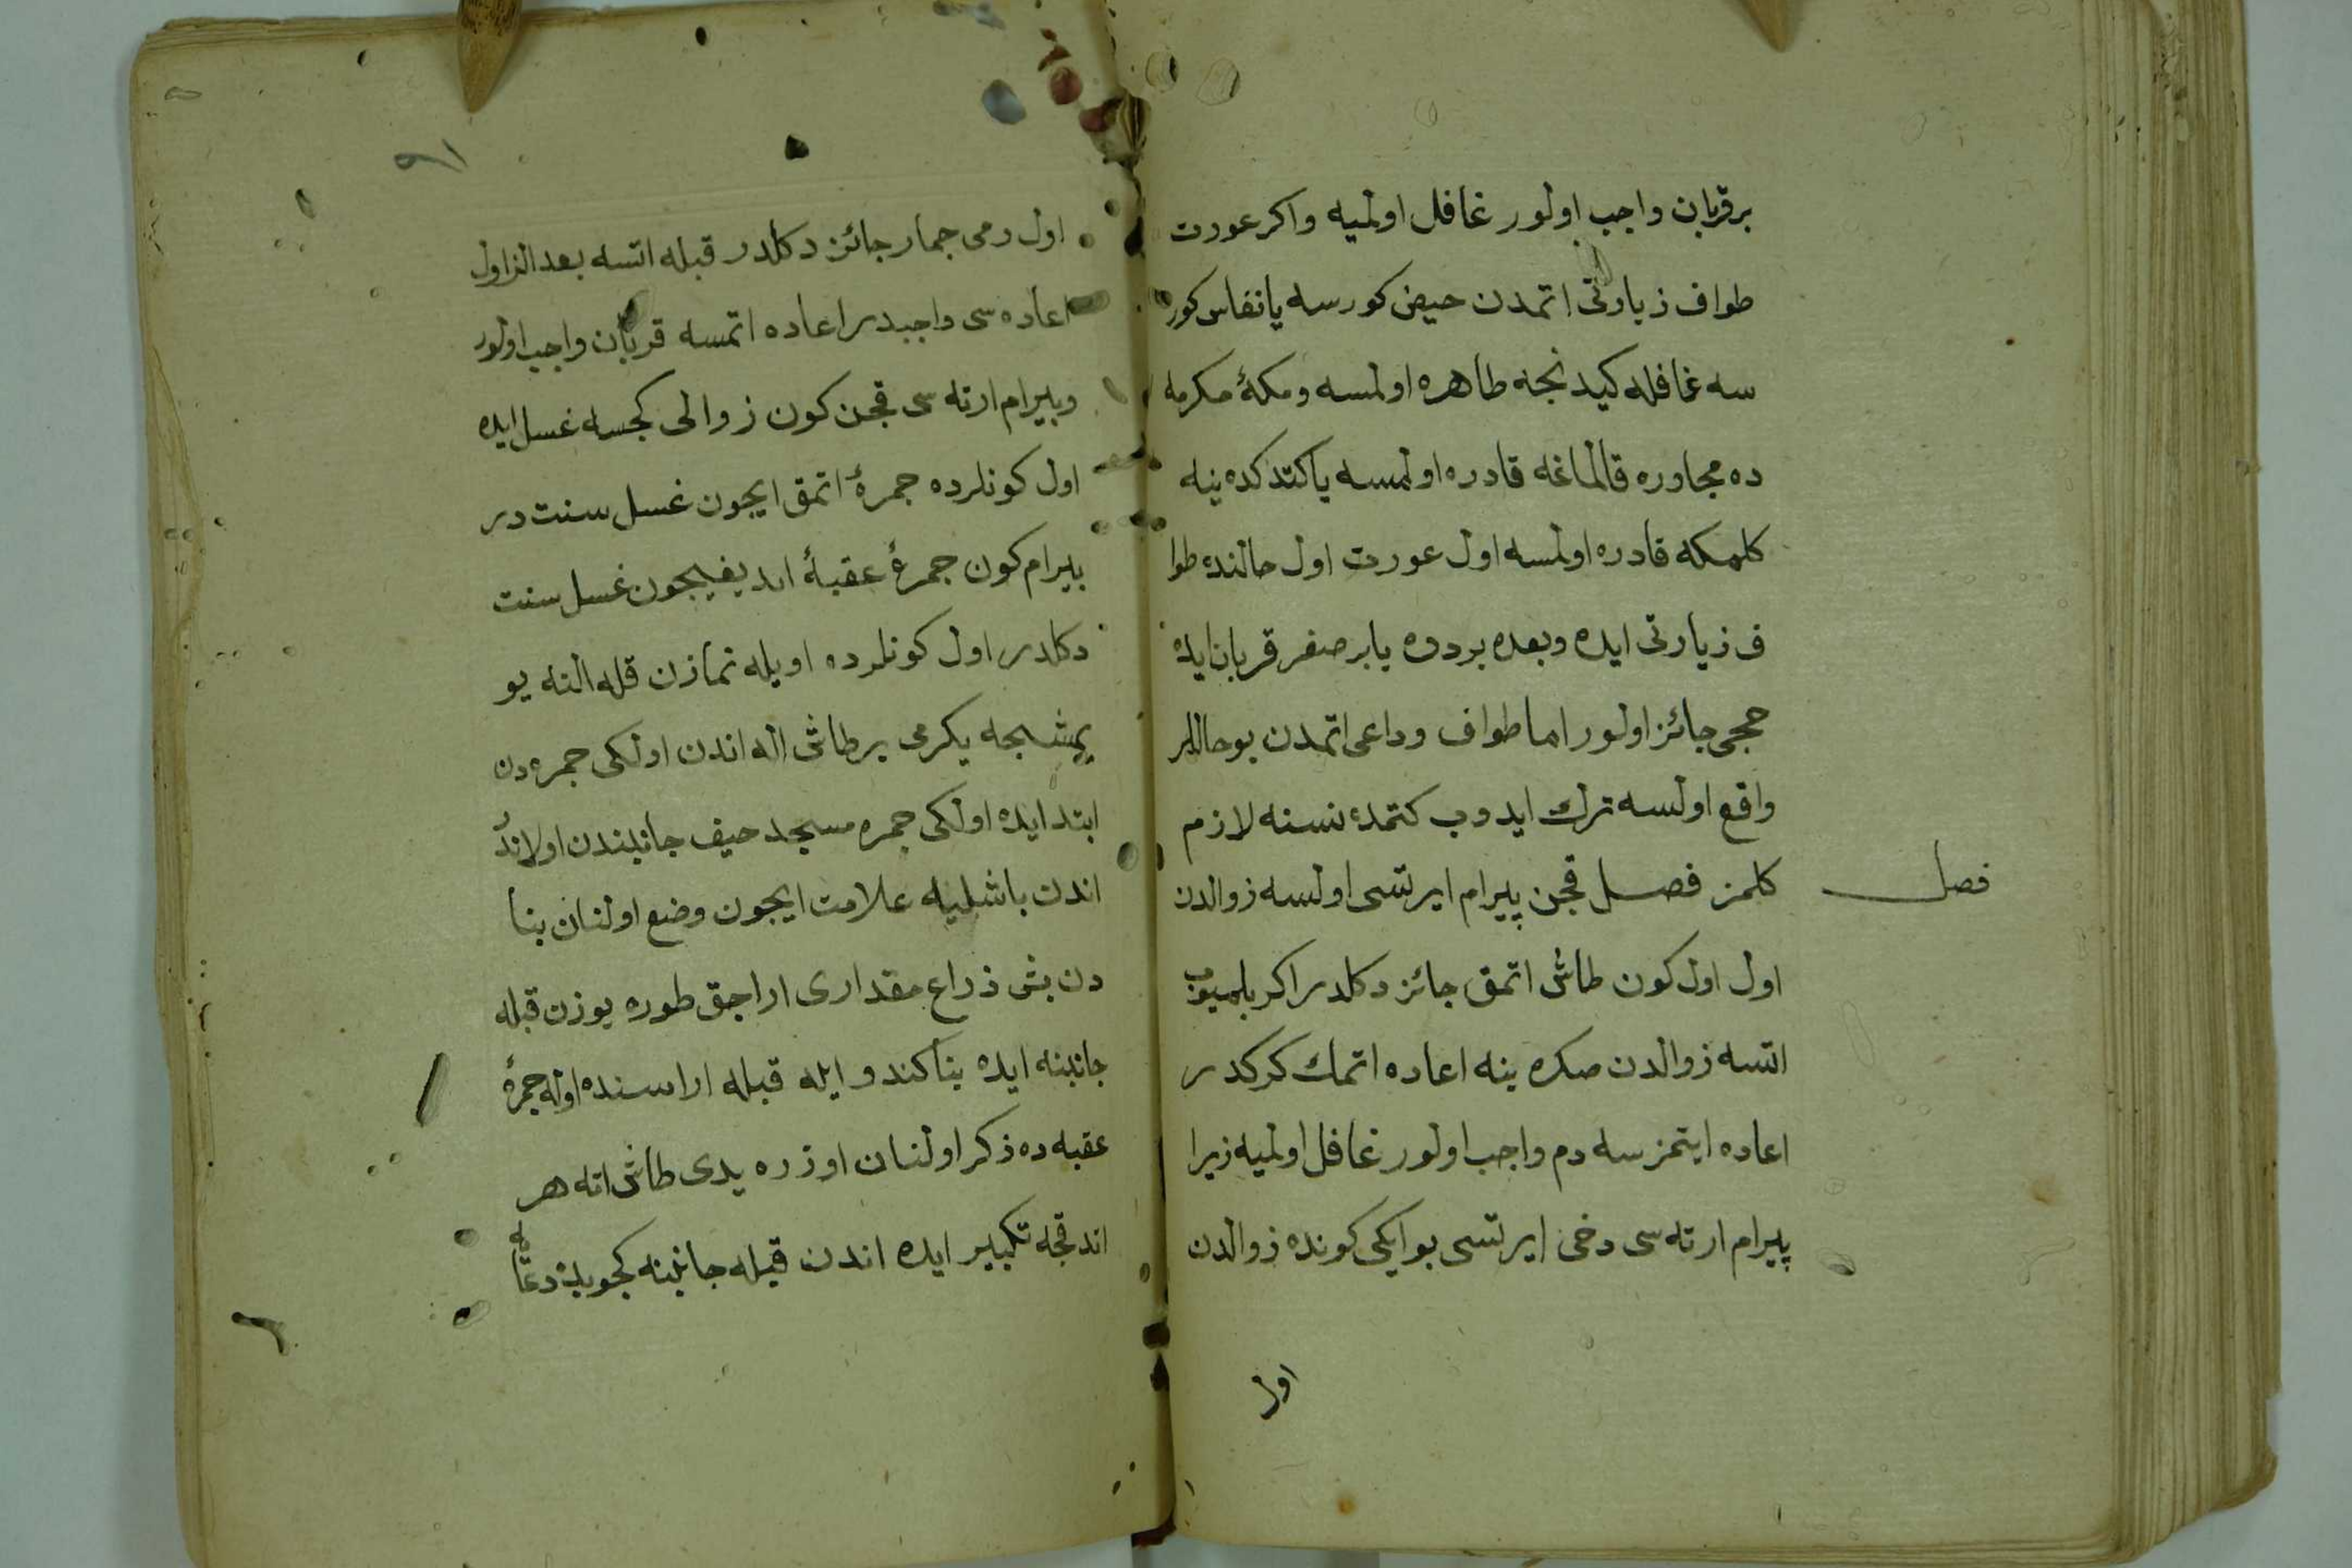 برقربان واجب اولور غافل اولميه واكر عورت
طواف زيارتى اتمدن حيض كورسه يا نفاس كور
سه غافله كيدنجه طاهره اولمسه ومكهٔ مكرمه
ده مجاوره قالماغه قادره اولمسه يا كتدكده ينه
كلمكه قادره اولمسه اول عورت اول حالنده طوا
ف زيارتى ايده وبعده بر دوه يا بر صغر قربان ايده
حجى جائز اولور اما طواف وداعى اتمدن بو حاللر
واقع اولسه ترك ايدوب كتمده نسنه لازم
فصل
كلمز فصل قچن پيرام ايرتسى اولسه زوالدن
اول اول كون طاش اتمق جائز دكلدر اكر بلميوب
اتسه زوالدن صكره ينه اعاده اتمك كركدر
اعاده ايتمزسه دم واجب اولور غافل اولميه زيرا
پيرام ارته سى دخى ايرتسى بو ايكى كونده زوالدن
اول
٩١
اول رمى جمار جائز دكلدر قبله اتسه بعد الزاول
اعاده سى واجبدر اعاده اتمسه قربان واجب اولور
وبيرام ارته سى قچن كون زوالى كچسه غسل ايده
اول كونلرده جمرهٔ اتمق ايچون غسل سنت در
بيرام كون جمرهٔ عقبهٔ اتديغيچون غسل سنت
دكلدر اول كونلرده اويله نمازن قله النه يو
يمشجه يكرمى بر طاش اله اندن اولكى جمره دن
ابتد ايده اولكى جمره مسجد حيف جانبندن اولاندر
اندن باشليه علامت ايچون وضع اولنان بنا
دن بش ذراع مقدارى اراجق طوره يوزن قبله
جانبنه ايده بنا كندو ايله قبله اراسنده اوله جمرهٔ
عقبه ده ذكر اولنان اوزره يدى طاش اته هر
اندقجه تكبير ايده اندن قبله جانبنه كچوب دعا